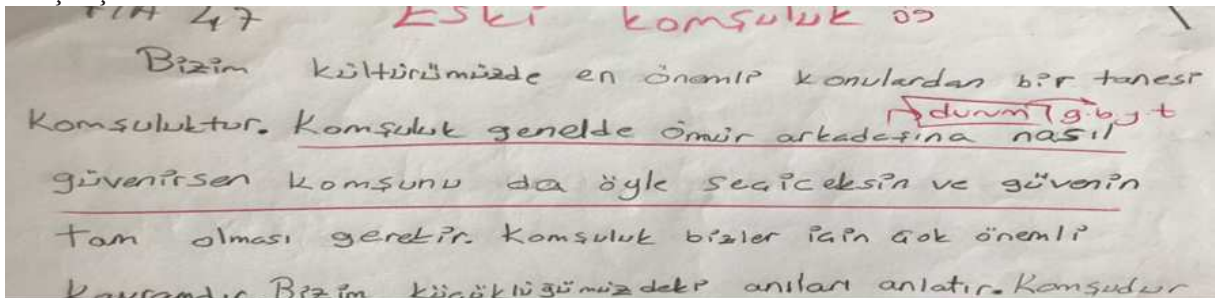 47 Eski komşuluk
Bizim kültürümüzde en önemli konulardan bir tanesi
durum g.b.y.t
Komşuluktur. Komşuluk genelde ömür arkadaşına nasıl
güvenirsen komşunu da öyle seçiceksin ve güvenin
tam olması gerekir. Komşuluk bizler için çok önemli
Kavramdır Bizim küçüklüğümüzdeki anıları anlatır. Komşudur